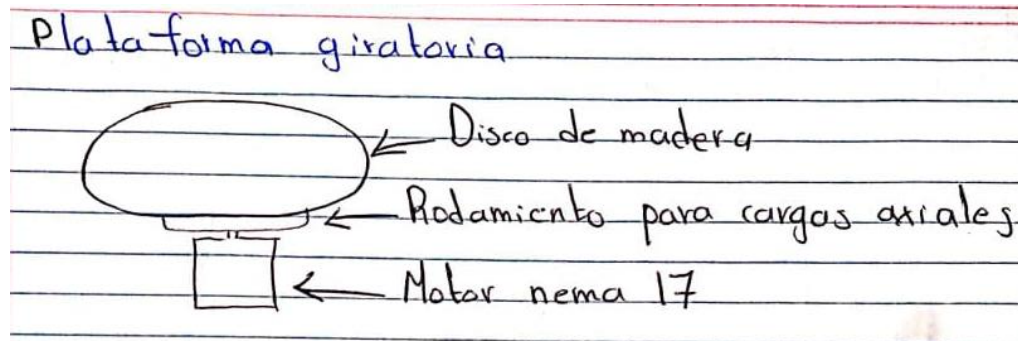 Plataforma giratoria
Disco de madera
Rodamiento para cargas axiales
Motor nema 17